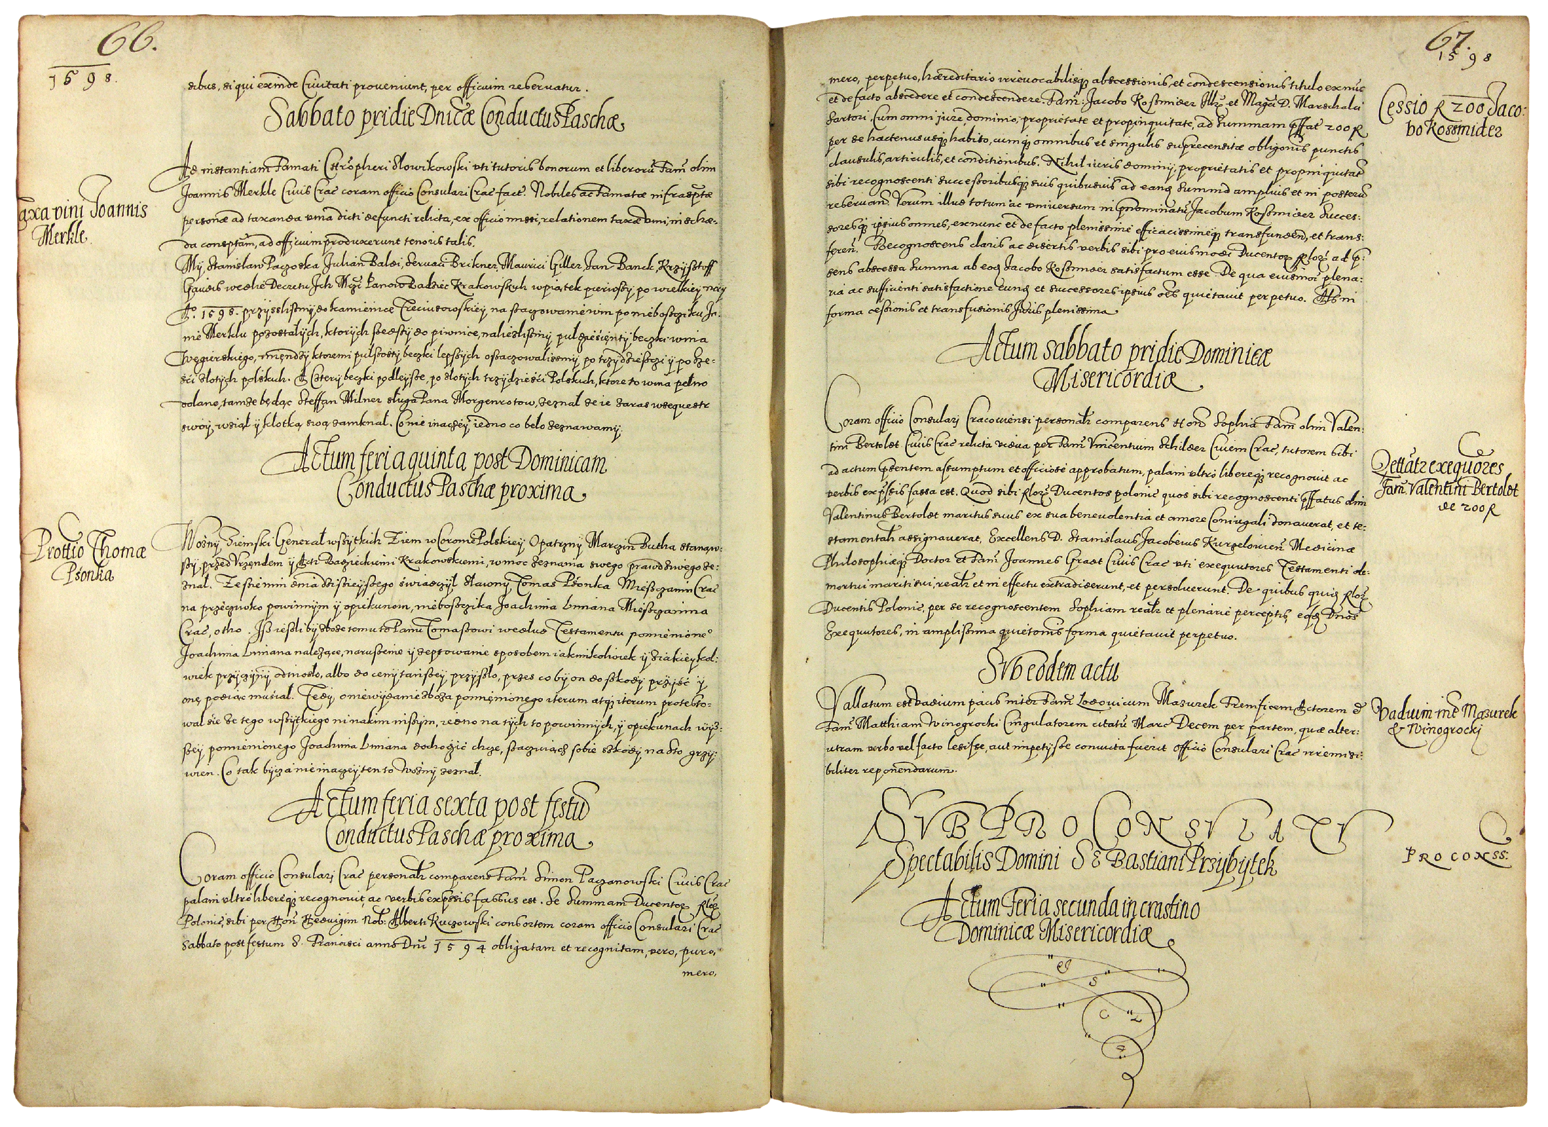 66.
1598.
sibus, si qui exinde Civitati proveniunt, per officium reservatur.
Sabbato pridie Dnicæ Conductus Paschæ
Taxa vini Joannis
Merkle
Ad instantiam Famati Słowikowski uti tutoris bonorum et liberorũ Fam̃ olim
Joannis Merkle Civis Crac̃ coram officio Consulari Crac̃ fact. Nobiles ac Famatæ infrascptæ
personæ ad taxanda vina dicti defuncti relicta, ex officio missi, relationem taxæ vini, in sche-
da conscptam, ad officium produxerunt tenoris talis.
My, Stanisław Julian Baldi, Brikner, Maurici Giller, Jan Banek, Krzysztoff
wedle Decretu Ich Panow Radziec Krakowskych w piątek pierwszy po wielkiey nocy
A° 1598. przyszlismy do kamienice na staczowanié win po niebosczyku Ja-
nie Merklu pozostałych, ktorych szedszy do piwnice, nalieźlismy beczki wina
węgierskiego, między ktoremi beczki lepszych oszaczowalismy po trzydziesci y po
złotych polskich. A cztery beczki podleysze, po złotych trzydzieści Polskich, ktore to wina pełno
dolano, tamże będąc Steffan Milner sługa Pana Morgenrotow, zeznał że ie zaraz w sequestr
swoy wziął y klotką swą zamknał. Co nie inaczey iedno co belo zeznawamy.
Actum feria quinta post Dominicam
Conductus Paschæ proxima
Prottio Thomæ
Psonka
Wozny Ziemski General wszytkich Ziem w Coronie Polskiey Opatrzny Marcin Butha stanąw-
szy przed Urzędem y Xięgi Radzieckimi Krakowskiemi, w moc zeznania swego prawdziwego ze-
znał. Że sie nim dnia dzisieyszego świadczył sławny Tomas Psonka Miesczanin Crac̃
na przeciwko powinnym y opiekunom, niebosczika Joachima Lmiana Miesczanina
Crac̃, otho. Iż iesliby zboże temuto Panu Tomaszowi wedlug Testamentu pomienione°
Joachima Lmiana należące, naruszenie y zepsowanie sposobem iakimkolwiek y z iakieykol-
wiek przyczyny odniosło, albo do ceny tańszey przyszło, przes co by on do szkody przyść y
onę podiąc musiał. Tedy, o niewydanie zboża pomienionego iterum atq̃ iterum protesto-
wał sie że tego wszytkiego ni nakim inszym, iedno na tych to powinnych, y opiekunach wyż-
szey pomienionego Joachima Lmiana dochodzić chce, szacuiącz sobie szkody na sto grzy-
wien. Co tak być a nie inaczey ten to Wozny zeznal.
Actum feria sexta post festũ
Conductus Paschæ proxima
Coram officio Consulari Crac̃ personalr̃ comparens Fam̃ Simon Paczanowski Civis Crac̃
palam ultro libereq̃ recognovit ac verbis expressis fassus est. Se summam Ducentor̃ flor̃
Polonic̃ sibi per Hoñ Hedvigim Nob: Alberti consortem coram officio Consulari Crac̃
Sabbato post festum S. Francisci anno Dñi 1594 obligatam et recognitam, vero, puro,
mero,
67.
1598
mero, perpetuo, hæreditario irrevocabilisq̃ abscessionis, et condescensionis titulo ex nunc
et de facto abscedere et condescendere Fam̃: Jacobo Rosmider Illr̃ et Magci D. Marschalci
Sartori. Cum omni jure, dominio, proprietate et propinquitate, ad summam pffat 200 fl
per se hactenus usq̃ habito, cumq̃ omnibus et singulis suprecensitæ obligonis punctis
clausulis, articulis, et conditionibus. Nihil iuris dominij, proprietatis et propinquitat̃
sibi recognoscenti successoribusq̃ suis quibusuis ad eanq̃ summã amplius et in posterũ
reservan. Totum illud totum ac universum in pnominatũ Jacobum Rosmider succes-
soresq̃ ipsius omnes, ex nunc et de facto plenissime efficacissimeq̃ transfunden, et trans-
feren. Recognoscens claris ac disertis verbis sibi pro eiusmodi Ducentor̃ flor̃ ad p̃-
sens abscessa summa ab eoq̃ Jacobo Rosmider satisfactum esse. De qua eiusmoi plena-
ria ac sufficienti satisfactione eunq̃ et successores ipsius oẽs quietavit perpetuo.
forma cessionis et transfusionis Juris plenissima.
Cessio fl 200 Jaco-
bo Rosmider
Actum sabbato pridie Dominicæ
Misericordiæ
Coram officio Consulari Cracoviensi personalr̃ comparens Hon̄ Sophia Fam̃ olim Valen-
tini Bertoldt Civis Crac̃ relicta vidua per Fam̃ Vincentium Schilder Civem Crac̃, tutorem sibi
ad actum p̃sentem assumptum et officiose approbatum, palam ultro libereq̃ recognovit ac
verbis exp̃sis fassa est. Quod sibi flor̃ Ducentos polonic̃ quos sibi recognoscenti pffatus olim
Valentinus Bertoldt maritus suus ex sua benevolentia et amore Coniugali donauerat, et te-
stamentalr̃ assignauerat, Excellens D. Stanislaus Jacobeius Kurzeloviens̃ Medicinæ
Philosophiæq̃ Doctor et Fam̃ Joannes Graet Civis Crac̃ uti exequutores Testamenti de-
mortui mariti sui, realr̃ et in effectu extradiderunt, et persolverunt. De quibus quidẽ flor̃
Ducentis Polonic̃, per se recognoscentem Sophiam realr̃ et plenarie perceptis eosq̃ Dños
Exequutores, in amplissima quietonis forma quietavit perpetuo.
Qettatr exequõres
Fam̃ Valentini Bertoldt
de 200 fl
Sub eodem actu
Vallatum est Vadium pacis inter Fam̃ Lodovicum Mazurek Actorem &
Fam̃ Matthiam Winogrocki Cingulatorem citatũ Marc̃ Decem per partem, quæ alter-
utram verbo vel facto lesisse, aut impetysse convicta fuerit officio Consulari Crac̃ irremisi-
biliter reponendarum.
Vadium intẽ Mazurek
& Winogrocki
SUB PROCONSULATU
Spectabilis Domini Sebastiani Przybytek
PROCONSS:
Actum Feria secunda in crastino
Dominicæ Misericordiæ